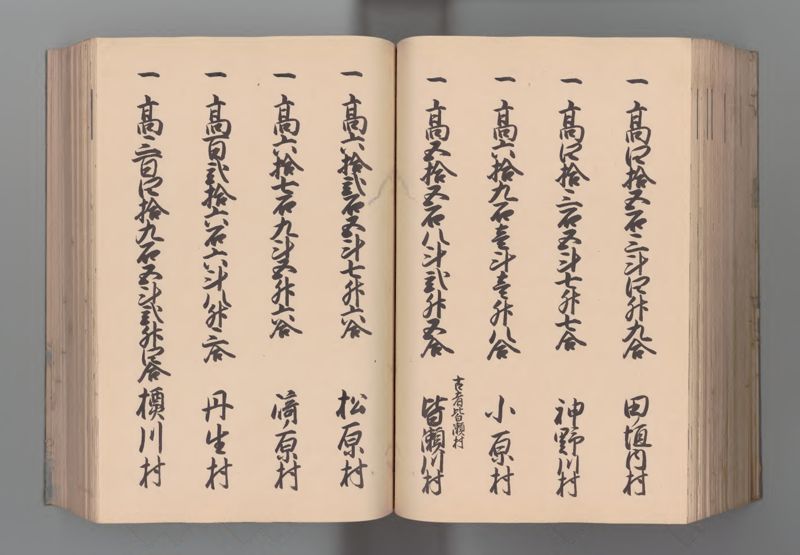 一高四拾五石三斗四升九合 田垣内村
一高四拾三石五斗七升七合 神野川村
一高六拾九石壱斗壱升八合 小原村
一高五拾五石八斗弐升五合 皆瀬川村
古者皆瀬村
一高六拾弐石五斗七升六合 松原村
一高六拾七石九斗五升六合 滝ノ原村
一高百弐拾六石六斗八升三合 丹生村
一高三百四拾九石五斗弐升四合 檟川村